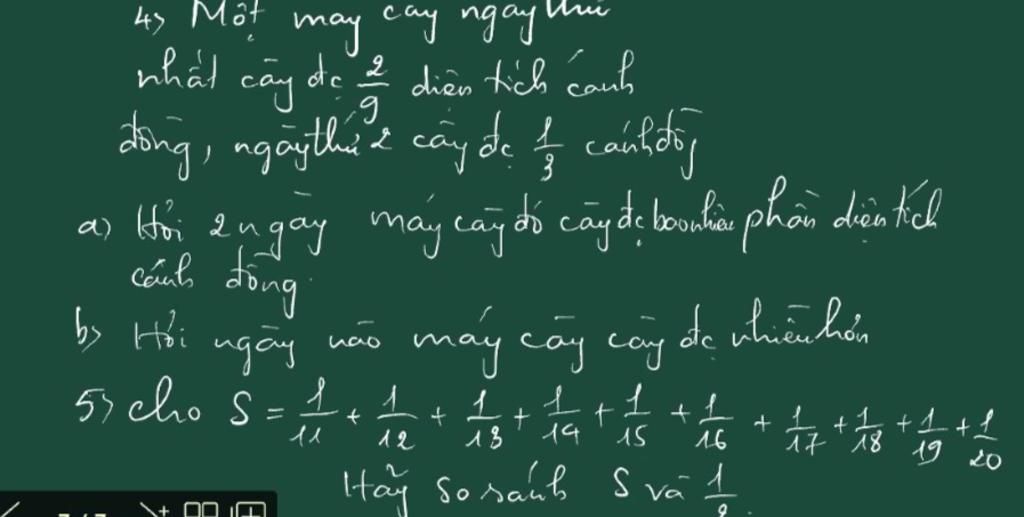 4) Một máy cày ngày thứ
nhất cày đc 2/9 diện tích cánh
đồng, ngày thứ 2 cày đc 1/3 cánh đồg
a) Hỏi 2 ngày máy cày đó cày đc bao nhiêu phần diện tích
cánh đồng.
b) Hỏi ngày nào máy cày cày đc nhiều hơn
5) cho S = 1/11 + 1/12 + 1/13 + 1/14 + 1/15 + 1/16 + 1/17 + 1/18 + 1/19 + 1/20
Hãy so sánh S và 1/2